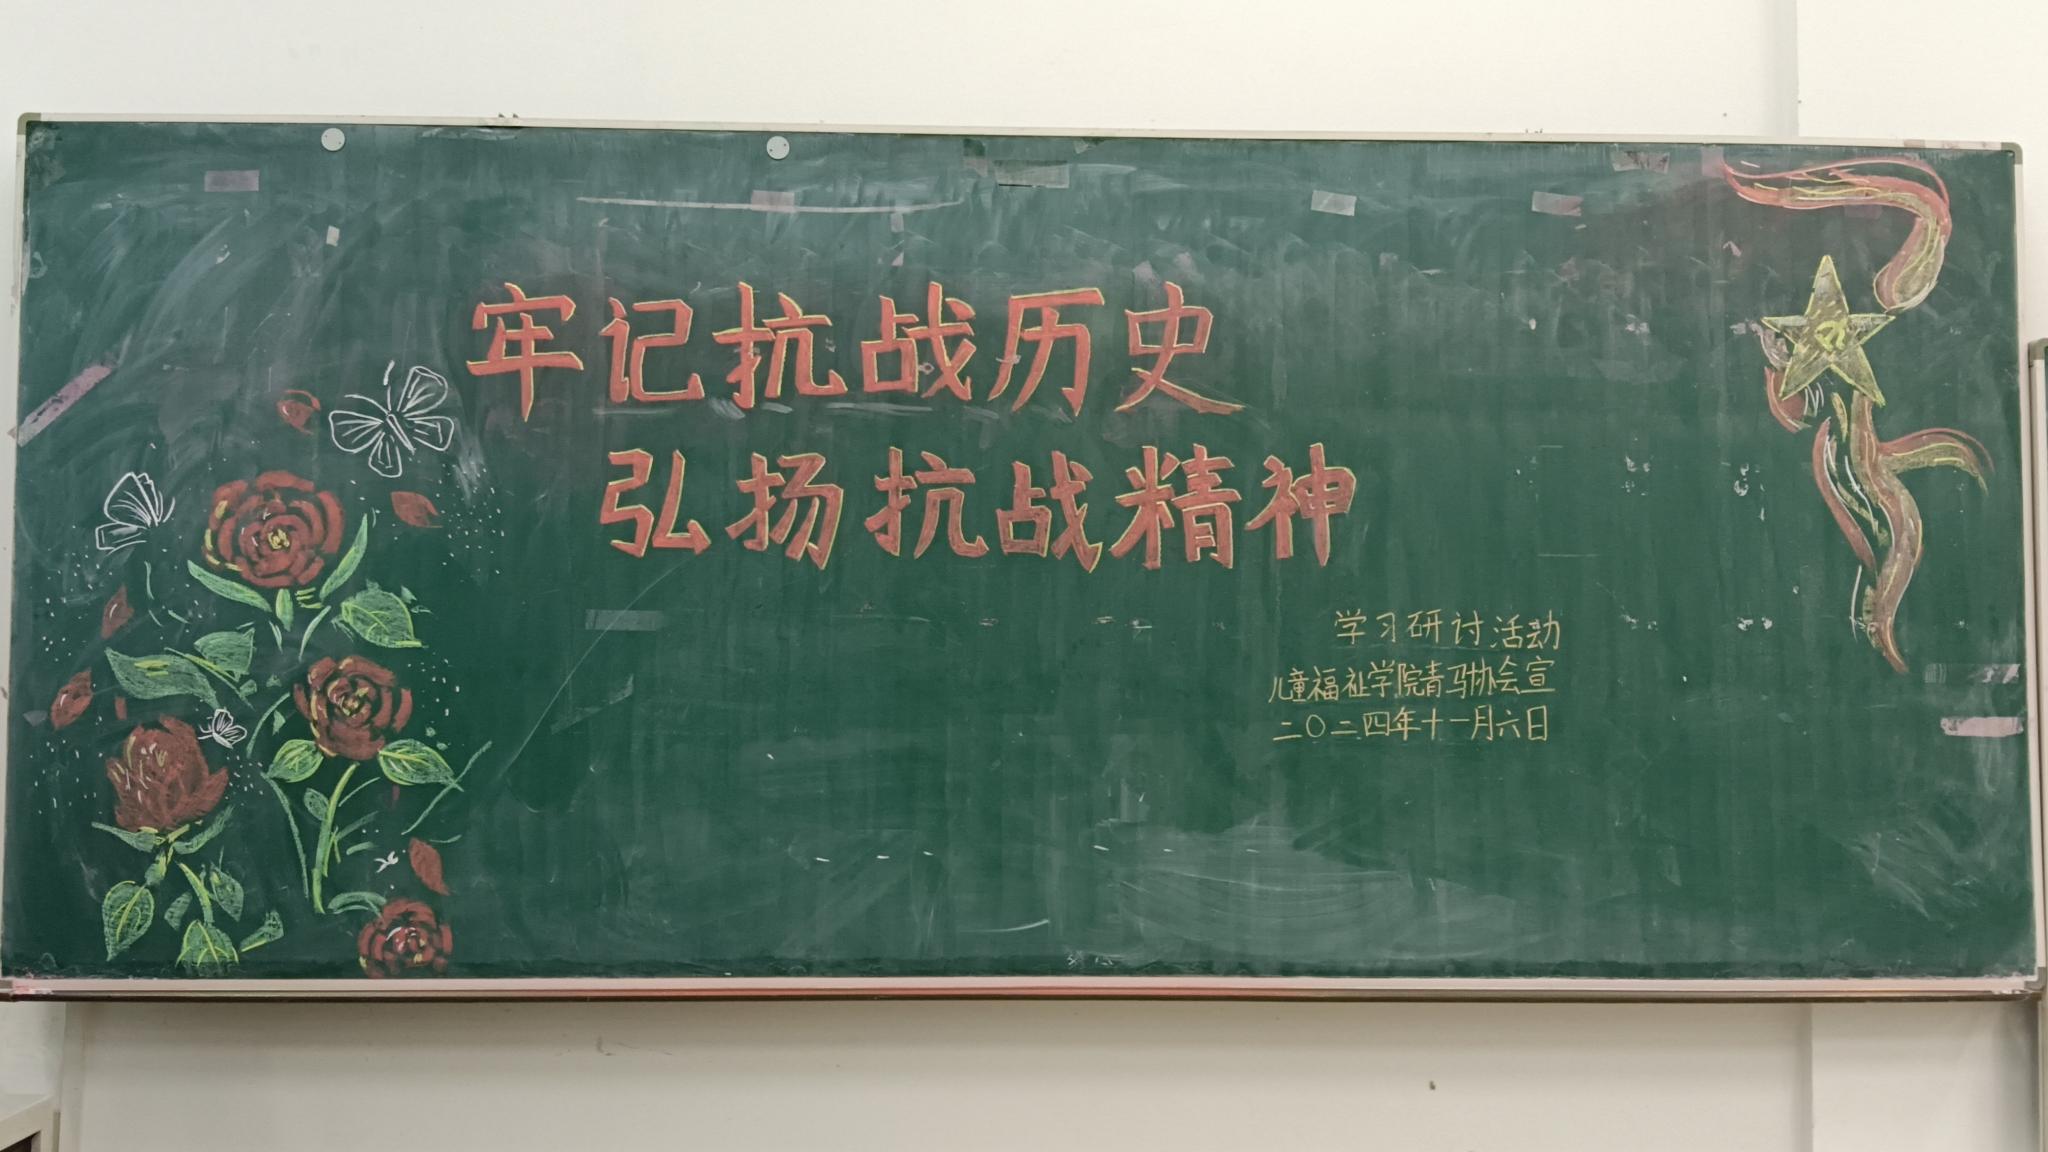 牢记抗战历史
弘扬抗战精神
学习研讨活动
儿童福祉学院青马协会宣
二〇二四年十一月六日